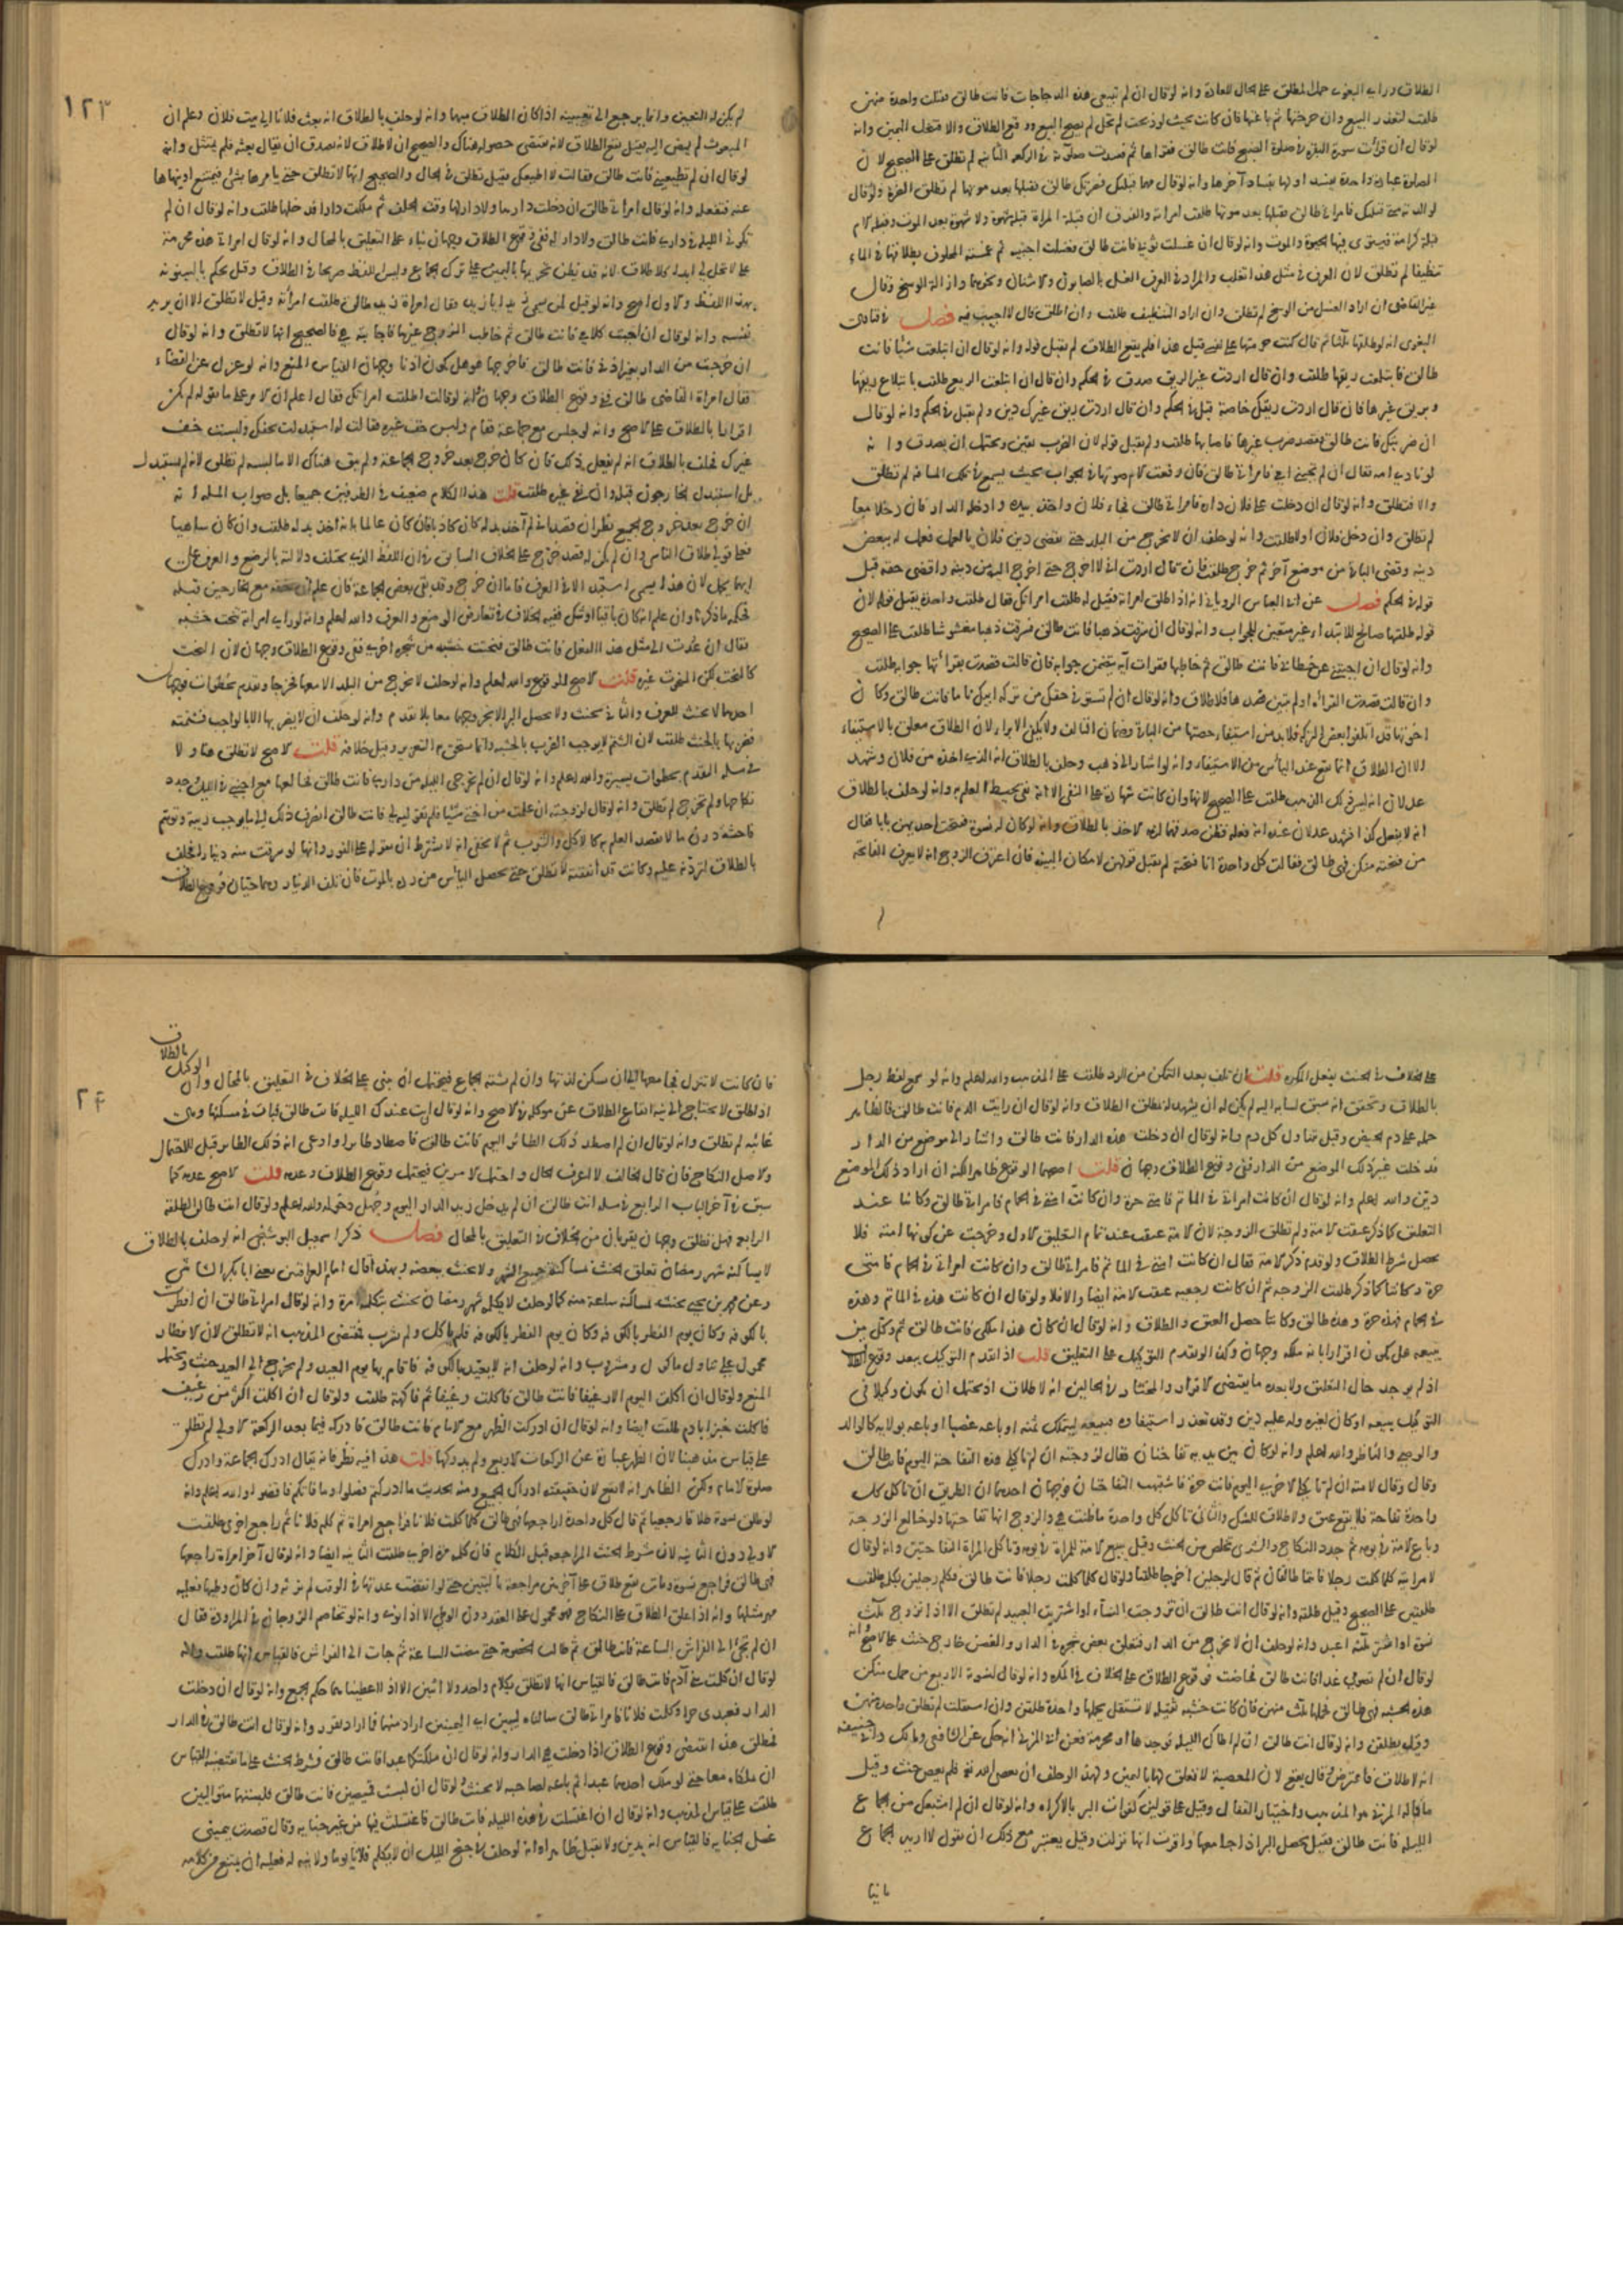 الطلاق وراى البغوى حمل المطلق على الحال للعادة وانه لو قال ان لم تبيعى هذه الدجاجات فانت طالق فقتلت واحدة منهن
طلقت لتعذر البيع وان جرحتها ثم باعتها فان كانت بحيث لو ذبحت لم تحل لم يصح البيع ووقع الطلاق والا فتحل اليمين وانه
لو قال ان قرأت سورة البقرة فى صلوة الصبح فانت طالق فقراها ثم فسدت صلوته فى الركعة الثانية لم تطلق على الصحيح لان
الصلوة عبادة واحدة يفسد اولها بفساد آخرها وانه لو قال مهما قبلتك فضرتك طالق فقبلها بعد موتها لم تطلق الضرة ولو قال
لوالدته متى قبلتك فامراتى طالق فقبلها بعد موتها طلقت امراته والفرق ان قبلة المراة قبلة شهوة ولا شهوة بعد الموت وقبلة الام
قبلة كرامة فيستوى فيها الحيوة والموت وانه لو قال ان غسلت ثوبى فانت طالق فغسلت اجنبية ثم غمسته المحلوف بطلاقها فى الماء
تنظيفا لم تطلق لان العرف فى مثل هذا تغلب والمراد فى العرف الغسل بالصابون والاشنان ونحوهما وازالة الوسخ وقال
غير القاضى ان اراد الغسل من الوسخ لم تطلق وان اراد التنظيف طلقت وان اطلق قال لا اجيب فيه فصل فى فتاوى
البغوى انه لو طلقها ثلثا ثم قال كنت حرمتها على نفسى قبل هذا فلم يقع الطلاق لم يقبل قوله وانه لو قال ان ابتلعت شيئا فانت
طالق فابتلعت ريقها طلقت وان قال اردت غير الريق صدق فى الحكم وان قال ان ابتلعت الريق طلقت بابتلاع ريقها
وبريق غيرها فان قال اردت ريقك خاصة قبل فى الحكم وان قال اردت ريق غيرك دين ولم يقبل فى الحكم وانه لو قال
ان ضربتك فانت طالق فقصد ضرب غيرها فاصابها طلقت ولم يقبل قوله لان الضرب يقين ويحتمل ان يصدق وانه
لو نادى امه فقال ان لم تجيبنى امى فامراتى طالق فان رفعت الام صوتها فى الجواب بحيث يسمع فى تلك المسافة لم تطلق
والا فتطلق وانه لو قال ان دخلت على فلان داره فامراتى طالق فجاء فلان واخذ بيده وادخله الدار فان دخلا معا
لم تطلق وان دخل فلان اولا طلقت وانه لو حلف ان لا يخرج من البلد حتى يقضى دين فلان بالعمل فعمل له ببعض
دينه وقضى الباقى من موضع آخر ثم خرج طلقت فان قال اردت انى لا اخرج حتى اخرج اليه من دينه واقضى حقه قبل
قوله فى الحكم فصل عن ابى العباس الرويانى انه اذا طلق امراته فقيل له طلقت امراتك فقال طلقت واحدة يقبل قوله لان
قوله طلقتها صالح للابتداء غير متعين للجواب وانه لو قال ان سرقت ذهبا فانت طالق فسرقت ذهبا مغشوشا طلقت على الصحيح
وانه لو قال ان اجبتنى عن خطابى فانت طالق ثم خاطبها فقرات آية يتضمن جوابه فان قالت قصدت بقرأتها جوابه طلقت
وان قالت قصدت القرآة او لم يتبين قصدها فلا طلاق وانه لو قال ان لم تستوفى حقك من تركة ابيك تاما فانت طالق وكان
اخوتها قد اتلفوا بعض التركة فلا بد من استيفاء حصتها من الباقى وضمان التالف ولا يكفى الابراء لان الطلاق معلق بالاستيفاء
الا ان الطلاق انما يقع عند الياس من الاستيفاء وانه لو اشار الى ذهب وحلف بالطلاق انه الذى اخذه من فلان وشهد
عدلان انه ليس ذلك الذهب طلقت على الصحيح لانها وان كانت شهادة على النفى الا انه نفى يحيط العلم به وانه لو حلف بالطلاق
انه لا يفعل كذا فشهد عدلان عنده انه فعله فظن صدقهما لزمه الاخذ بالطلاق وانه لو كان له نسوة ففتحت احديهن بابا فقال
من فتحته منكن فهى طالق فقالت كل واحدة انا فتحته لم يقبل قولهن لامكان البينة فان اعترف الزوج انه لا يعرف الفاتحة
١٢٣
لم يكن له التعيين وانما يرجع الى تعيينه اذا كان الطلاق مبهما وانه لو حلف بالطلاق انه بعث فلانا الى بيت فلان وعلم ان
المبعوث لم يمض اليه فقيل يقع الطلاق لانه يقتضى حصوله هناك والصحيح ان لا طلاق لانه يصدق ان يقال بعثه فلم يمتثل وانه
لو قال ان لم تطيعينى فانت طالق فقالت لا اطيعك فقيل تطلق فى الحال والصحيح انها لا تطلق حتى يامرها بشئ فيمتنع او ينهاها
عنه فتفعله وانه لو قال امراتى طالق ان دخلت دارها ولا دار لها وقت الحلف ثم ملكت دارا فدخلها طلقت وانه لو قال ان لم
تكونى الليلة فى دارى فانت طالق ولا دار له ففى وقوع الطلاق وجهان بناء على التعليق بالمحال وانه لو قال امراتى هذه محرمة
على لا تحل لى ابدا فلا طلاق لانه قد يظن تحريمها باليمين على ترك الجماع وليس اللفظ صريحا فى الطلاق وقيل يحكم بالبينونة
بهذا اللفظ والاول اصح وانه لو قيل لمن يسمى زيدا يا زيد فقال امراة زيد طالق طلقت امراته وقيل لا تطلق الا ان يريد
نفسه وانه لو قال ان اجبت كلامى فانت طالق ثم خاطب الزوج غيرها فاجابته هى فالصحيح انها لا تطلق وانه لو قال
ان خرجت من الدار بغير اذنى فانت طالق فاخرجها هو هل يكون اذنا وجهان القياس المنع وانه لو عزل عن القضاء
فقال امراة القاضى طالق ففى وقوع الطلاق وجهان وانه لو قالت اطلقت امراتك فقال اعلم ان الامر على ما تقوله لم يكن
اقرارا بالطلاق على الاصح وانه لو جلس مع جماعة فقام ولبس خف غيره فقالت له استبدلت بخفك ولبست خف
غيرك فحلف بالطلاق انه لم يفعل ذلك فان كان خرج بعد خروج الجماعة ولم يبق هناك الا ما لبسه لم تطلق لانه لم يستبدل
بل استبدل الخارجون قبله وان بقى غيره طلقت قلت هذا الكلام ضعيف فى الطرفين جميعا بل صواب المسلة انه
ان خرج بعد خروج الجميع نظر ان قصد انى لم آخذ بدله كان كاذبا فان كان عالما بانه اخذ بدله طلقت وان كان ساهيا
فعلى قولى طلاق الناسى وان لم يكن له قصد خرج على الخلاف السابق فى ان اللفظ الذى يختلف دلالته بالوضع والعرف على
ايهما يحمل لان هذا ليس استبدالا فى العرف فاما ان خرج وقد بقى بعض الجماعة فان علم ان خفه مع الخارجين قبله
فحكمه ما ذكرنا وان علم انه كان باقيا او شك ففيه الخلاف فى تعارض الوضع والعرف والله اعلم وانه لو راى امراته تنحت خشبة
فقال ان عدت الى مثل هذا الفعل فانت طالق فنحتت خشبة من شجرة اخرى ففى وقوع الطلاق وجهان لان النحت
كالنحت لكن المنحوت غيره قلت الاصح الوقوع والله اعلم وانه لو حلف لا تخرج من البلد الا معها فخرجا وتقدم بخطوات فوجهان
احدهما لا يحنث للعرف والثانى يحنث ولا يحصل البر الا بخروجهما معا بلا تقدم وانه لو حلف ان لا يضربها الا بالواجب فشتمته
فضربها بالخشب طلقت لان الشتم لا يوجب الضرب بالخشب وانما يستحق به التعزير وقيل خلافه قلت الاصح لا تطلق هنا ولا
فى مسلة التقدم بخطوات يسيرة والله اعلم وانه لو قال ان لم تخرجى الليلة من دارى فانت طالق فخالعها مع اجنبى فى الليل وجدد
نكاحها ولم تخرج لم تطلق وانه لو قال لزوجته ان علمت من اختى شيئا فلم تقولى لى فانت طالق انصرف ذلك الى ما يوجب ريبة وتوهم
فاحشة دون ما لا يقصد العلم به كالاكل والشرب ثم لا يخفى انه لا يشترط ان تقوله على الفور وانها لو سرقت منه دينارا فحلف
بالطلاق لتردنه عليه وكانت قد انفقته لا تطلق حتى يحصل الياس من رده بالموت فان تلف الدينار وهما حيان فوقوع الطلاق
على الخلاف فى الحنث بفعل المكره قلت ان تلف بعد التمكن من الرد طلقت على المذهب والله اعلم وانه لو سمع لفظ رجل
بالطلاق وتحقق انه سبق لسانه اليه لم يكن له ان يشهد له بمطلق الطلاق وانه لو قال ان رايت الدم فانت طالق فالظاهر
حمله على دم الحيض وقيل يتناول كل دم وانه لو قال ان دخلت هذه الدار فانت طالق واشار الى موضع من الدار
فدخلت غير ذلك الموضع من الدار ففى وقوع الطلاق وجهان قلت اصحهما الوقوع ظاهرا لكنه ان اراد ذلك الموضع
دين والله اعلم وانه لو قال ان كانت امراتى فى الماتم فامتى حرة وان كانت امتى فى الحمام فامراتى طالق وكانتا عند
التعليق كما ذكر عتقت الامة ولم تطلق الزوجة لان الامة عتقت عند تمام التعليق الاول وخرجت عن كونها امته فلا
يحصل شرط الطلاق ولو قدم ذكر الامة فقال ان كانت امتى فى الماتم فامراتى طالق وان كانت امراتى فى الحمام فامتى
حرة وكانتا كما ذكر طلقت الزوجة ثم ان كانت رجعية عتقت الامة ايضا والا فلا ولو قال ان كانت هذه فى الماتم وهذه
فى الحمام فهذه حرة وهذه طالق وكانتا حصل العتق والطلاق وانه لو قال ان كان هذا ملكى فانت طالق ثم وكل من
يبيعه هل يكون اقرارا بانه ملكه وجهان وكذا لو تقدم التوكيل على التعليق قلت اذا تقدم التوكيل يبعد وقوع الطلاق
اذ لم يوجد حال التعليق ولا بعده ما يقتضى الاقرار والمختار فى الحالين انه لا طلاق اذ يحتمل ان يكون وكيلا فى
التوكيل ببيعه او كان لغيره وله عليه دين وقد تعذر استيفاؤه فيبيعه ليتملك ثمنه او باعه غصبا او باعه بولايه كالوالد
والوصى والناظر والله اعلم وانه لو كان بين يديه تفاحتان فقال لزوجته ان لم تاكلى هذه التفاحة اليوم فانت طالق
وقال وقال لامته ان لم تاكلى الاخرى اليوم فانت حرة فاشتبهت التفاحتان فوجهان احدهما ان الطريق ان تاكل كل
واحدة تفاحة فلا يقع عتق ولا طلاق للشك والثانى تاكل كل واحدة ما ظنت هى والزوج انها تفاحتها ولو خالع الزوجة
وباع الامة فى يومه ثم جدد النكاح والشرى تخلص من الحنث وقيل يبيع الامة للمراة فى يومه وتاكل المراة التفاحتين وانه لو قال
لامراتيه كلما كلمت رجلا فانتما طالقتان ثم قال لرجلين اخرجا طلقتا ولو قال كلما كلمت رجلا فانت طالق فكلم رجلين بكلمة طلقت
طلقتين على الصحيح وقيل طلقة وانه لو قال انت طالق ان تزوجت النساء او اشتريت العبيد لم تطلق الا اذا تزوج ثلث
نسوة او اشترى ثلثة اعبد وانه لو حلف ان لا يخرج من الدار فتعلق ببعض شجرة فى الدار والغصن خارج حنث على الاصح وانه
لو قال ان لم تصومى غدا فانت طالق فحاضت فوقوع الطلاق على الخلاف فى المكره وانه لو قال لنسوة الاربع من حمل منكن
هذه الخشبة فهى طالق فحملها ثلث منهن فان كانت خشبة ثقيلة لا تستقل بحملها واحدة طلقن وان استقلت لم تطلق واحدة منهن
وقيل يطلقن وانه لو قال انت طالق ان لم اطاك الليلة فوجدها حائضا او محرمة فعن المزنى انه حكى عن الشافعى ومالك وابى حنيفة
انه لا طلاق فاعترض وقال يقع لان المعصية لا تعلق لها باليمين ولهذا لو حلف ان يعصى الله تعالى فلم يعص حنث وقيل
ما قاله المزنى هو المذهب واختيار القفال وقيل على قولين كفوات البر بالاكراه وانه لو قال ان لم اشبعك من الجماع
الليلة فانت طالق فقيل يحصل البر اذا جامعها واقرت انها نزلت وقيل يعتبر مع ذلك ان تقول لا اريد الجماع
ثانيا
الوكيل بالطلاق
فان كانت لا تنزل فيجامعها الى ان تسكن لذتها وان لم تشته الجماع فيحتمل ان يبنى على الخلاف فى التعليق بالمحال وان
اذا طلق لا يحتاج الى نية ايقاع الطلاق عن موكله فى الاصح وانه لو قال ابت عندك الليلة فانت طالق فبات فى مسكنها وهى
غائبة لم تطلق وانه لو قال ان لم اصطد ذلك الطائر اليوم فانت طالق فاصطاد طائرا وادعى انه ذلك الطائر قبل للاحتمال
والاصل النكاح فان قال الحالف لا اعرف الحال واحتمل الامرين فيحتمل وقوع الطلاق وعدمه قلت الاصح عدمه كما
سبق فى آخر الباب الرابع فى مسلة انت طالق ان لم يدخل زيد الدار اليوم وجهل دخوله والله اعلم ولو قال انت طالق الطلقة
الرابعة فهل تطلق وجهان يقربان من الخلاف فى التعليق بالمحال فصل ذكر اسمعيل البوشنجى انه لو حلف بالطلاق
لا يساكنه شهر رمضان تعلق الحنث بمساكنة جميع الشهر ولا يحنث ببعضه وبهذا قال امام العراقين يعنى ابا بكر الشاشى
وعن محمد بن يحيى يحنث بمساكنة ساعة منه كما لو حلف لا يكلمه شهر رمضان يحنث بتكليمه مرة وانه لو قال امراتى طالق ان افطرت
بالكوفة وكان يوم الفطر بالكوفة وكان يوم الفطر بالكوفة فلم ياكل ولم يشرب فمقتضى المذهب انه لا تطلق لان الافطار
محمول على تناول ماكول ومشروب وانه لو حلف انه لا يعيد بالكوفة فاقام بها يوم العيد ولم يخرج الى العيد حنث ويحتمل
المنع ولو قال ان اكلت اليوم الا رغيفا فانت طالق فاكلت رغيفا ثم فاكهة طلقت ولو قال ان اكلت اكثر من رغيف
فاكلت خبزا بادم طلقت ايضا وانه لو قال ان ادركت الظهر مع الامام فانت طالق فادركه فيما بعد الركعة الاولى لم تطلق
على قياس مذهبنا لان الظهر عبارة عن الركعات الاربع ولم يدركها قلت هذا فيه نظر فانه يقال ادرك الجماعة وادرك
صلوة الامام ولكن الظاهر انه لا يقع لان حقيقته ادراك الجميع ومنه الحديث ما ادركتم فصلوا وما فاتكم فاقضوا والله اعلم وانه
لو طلق نسوة طلاقا رجعيا ثم قال كل واحدة اراجعها فهى طالق كلما كلمت فلانا فراجع امراة ثم كلم فلانا ثم راجع اخرى طلقت
الاولى دون الثانية لان شرط الحنث المراجعة قبل الكلام فان كلمه مرة اخرى طلقت الثانية ايضا وانه لو قال آخر امراة اراجعها
فهى طالق فراجع نسوة ومات يقع طلاق على آخرهن مراجعة بالتبيين حتى لو انقضت عدتها فى الوقت لم ترثه وان كان وطيها فعليه
مهر مثلها وانه اذا علق الطلاق على النكاح فهو محمول على العقد دون الوطى الا اذا نوى وانه لو تخاصم الزوجان فى المراودة فقال
ان لم تجئ الى الفراش الساعة فانت طالق ثم طالت الخصومة حتى مضت الساعة ثم جات الى الفراش فالقياس انها طلقت وانه
لو قال ان كلمت بنى آدم فانت طالق فالقياس انها لا تطلق بكلام واحد ولا اثنين الا اذا اعطيناهما حكم الجمع وانه لو قال ان دخلت
الدار فعبدى حر او كلمت فلانا فامراتى طالق سالناه ليبين اى اليمينين اراد منهما فما اراد تقرر وانه لو قال انت طالق فى الدار
فمطلق هذا يقتضى وقوع الطلاق اذا دخلت هى الدار وانه لو قال ان ملكتما عبدا فانت طالق فشرط الحنث على ما يقتضيه القياس
ان ملكاه معا حتى لو ملك احدهما عبدا ثم باعه لصاحبه لا يحنث ولو قال ان لبست قميصين فانت طالق فلبستهما متواليين
طلقت على قياس المذهب وانه لو قال ان اغتسلت فى هذه الليلة فانت طالق فاغتسلت فيها من غير جنابة وقال قصدت بيمينى
غسل الجنابة فالقياس انه يدين ولا يقبل ظاهرا وانه لو حلف فى جنح الليل ان لا يكلم فلانا يوما ولا نية له فعليه ان يمتنع من كلامه